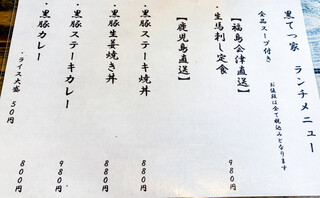 黒てつ家 ランチメニュー
全品スープ付き お値段は全て税込みとなります
【福島会津直送】
・生馬刺し定食 980円
【鹿児島直送】
・黒豚ステーキ焼丼 880円
・黒豚生姜焼き丼 880円
・黒豚ステーキカレー 980円
・黒豚カレー 800円
・ライス大盛 50円